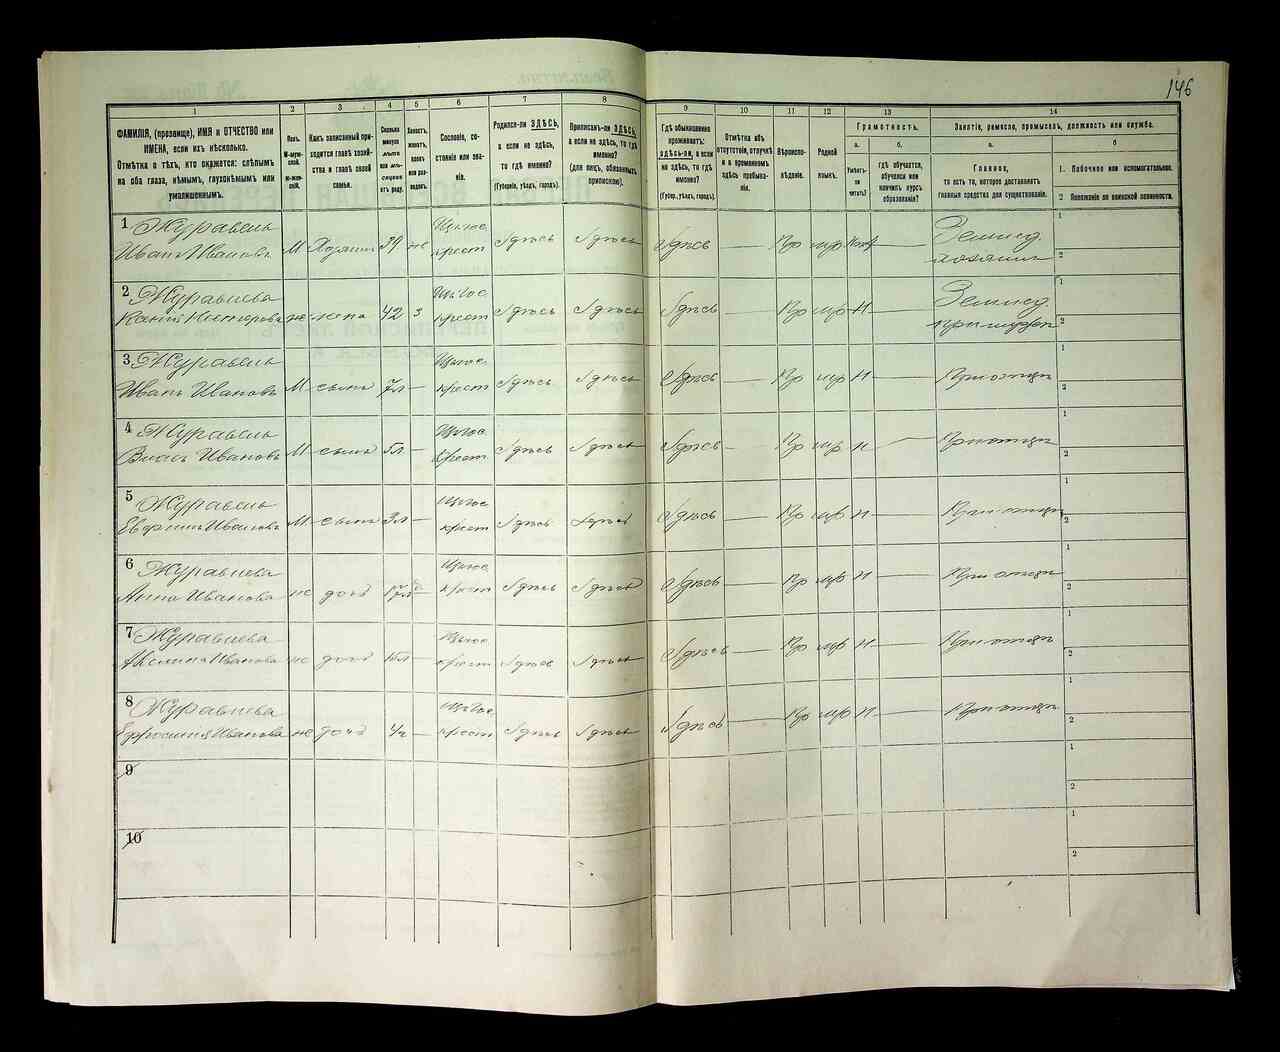 146
1 2 3 4 5 6 7 8 9 10 11 12 13 14
ФАМИЛІЯ, (прозвище), ИМЯ и ОТЧЕСТВО или ИМЕНА, если ихъ нѣсколько.
Отмѣтка о тѣхъ, кто окажется: слѣпымъ на оба глаза, нѣмымъ, глухонѣмымъ или умалишеннымъ.
Полъ. М-мужской. Ж-женскій.
Какъ записанный приходится главѣ хозяйства и главѣ своей семьи.
Сколько минуло лѣтъ или мѣсяцевъ отъ роду.
Холостъ, женатъ, вдовъ или разведенъ.
Сословіе, состояніе или званіе.
Родился-ли ЗДѢСЬ, а если не здѣсь, то гдѣ именно?
(Губернія, уѣздъ, городъ).
Приписанъ-ли ЗДѢСЬ, а если не здѣсь, то гдѣ именно?
(для лицъ, обязанныхъ припискою).
Гдѣ обыкновенно проживаетъ: здѣсь-ли, а если не здѣсь, то гдѣ именно?
(Губер., уѣздъ, городъ).
Отмѣтка объ отсутствіи, отлучкѣ и о временномъ здѣсь пребываніи.
Вѣроисповѣданіе.
Родной языкъ.
Грамотность.
а. Умѣетъ-ли читать?
б. гдѣ обучается, обучался или кончилъ курсъ образованія?
Занятіе, ремесло, промыселъ, должность или служба.
а. Главное, то есть то, которое доставляетъ главныя средства для существованія.
б
1. Побочное или вспомогательное.
2 Положеніе по воинской повинности.
1 Журавель
Иванъ Ивановъ М Хозяинъ 39 же крест Здѣсь Здѣсь Здѣсь — Пр мр — Землед. хозяинъ
2 Журавлева
Нестерова же жена 42 з крест Здѣсь Здѣсь Здѣсь — Пр мр Н — Землед.
3 Журавель
Иванъ Ивановъ М сынъ 7л — крест Здѣсь Здѣсь Здѣсь — Пр мр Н — При отцѣ
4 Журавель
Власъ Ивановъ М сынъ 5л — крест Здѣсь Здѣсь Здѣсь — Пр мр Н — При отцѣ
5 Журавель
Ивановъ М сынъ 3л — крест Здѣсь Здѣсь Здѣсь — Пр мр Н — При отцѣ
6 Журавлева
Анна Иванова же дочь крест Здѣсь Здѣсь Здѣсь — Пр мр Н — При отцѣ
7 Журавлева
Иванова же дочь крест Здѣсь Здѣсь Здѣсь — Пр мр Н — При отцѣ
8 Журавлева
Ефросинія Иванова же дочь крест Здѣсь Здѣсь Здѣсь — Пр мр Н — При отцѣ
9
10